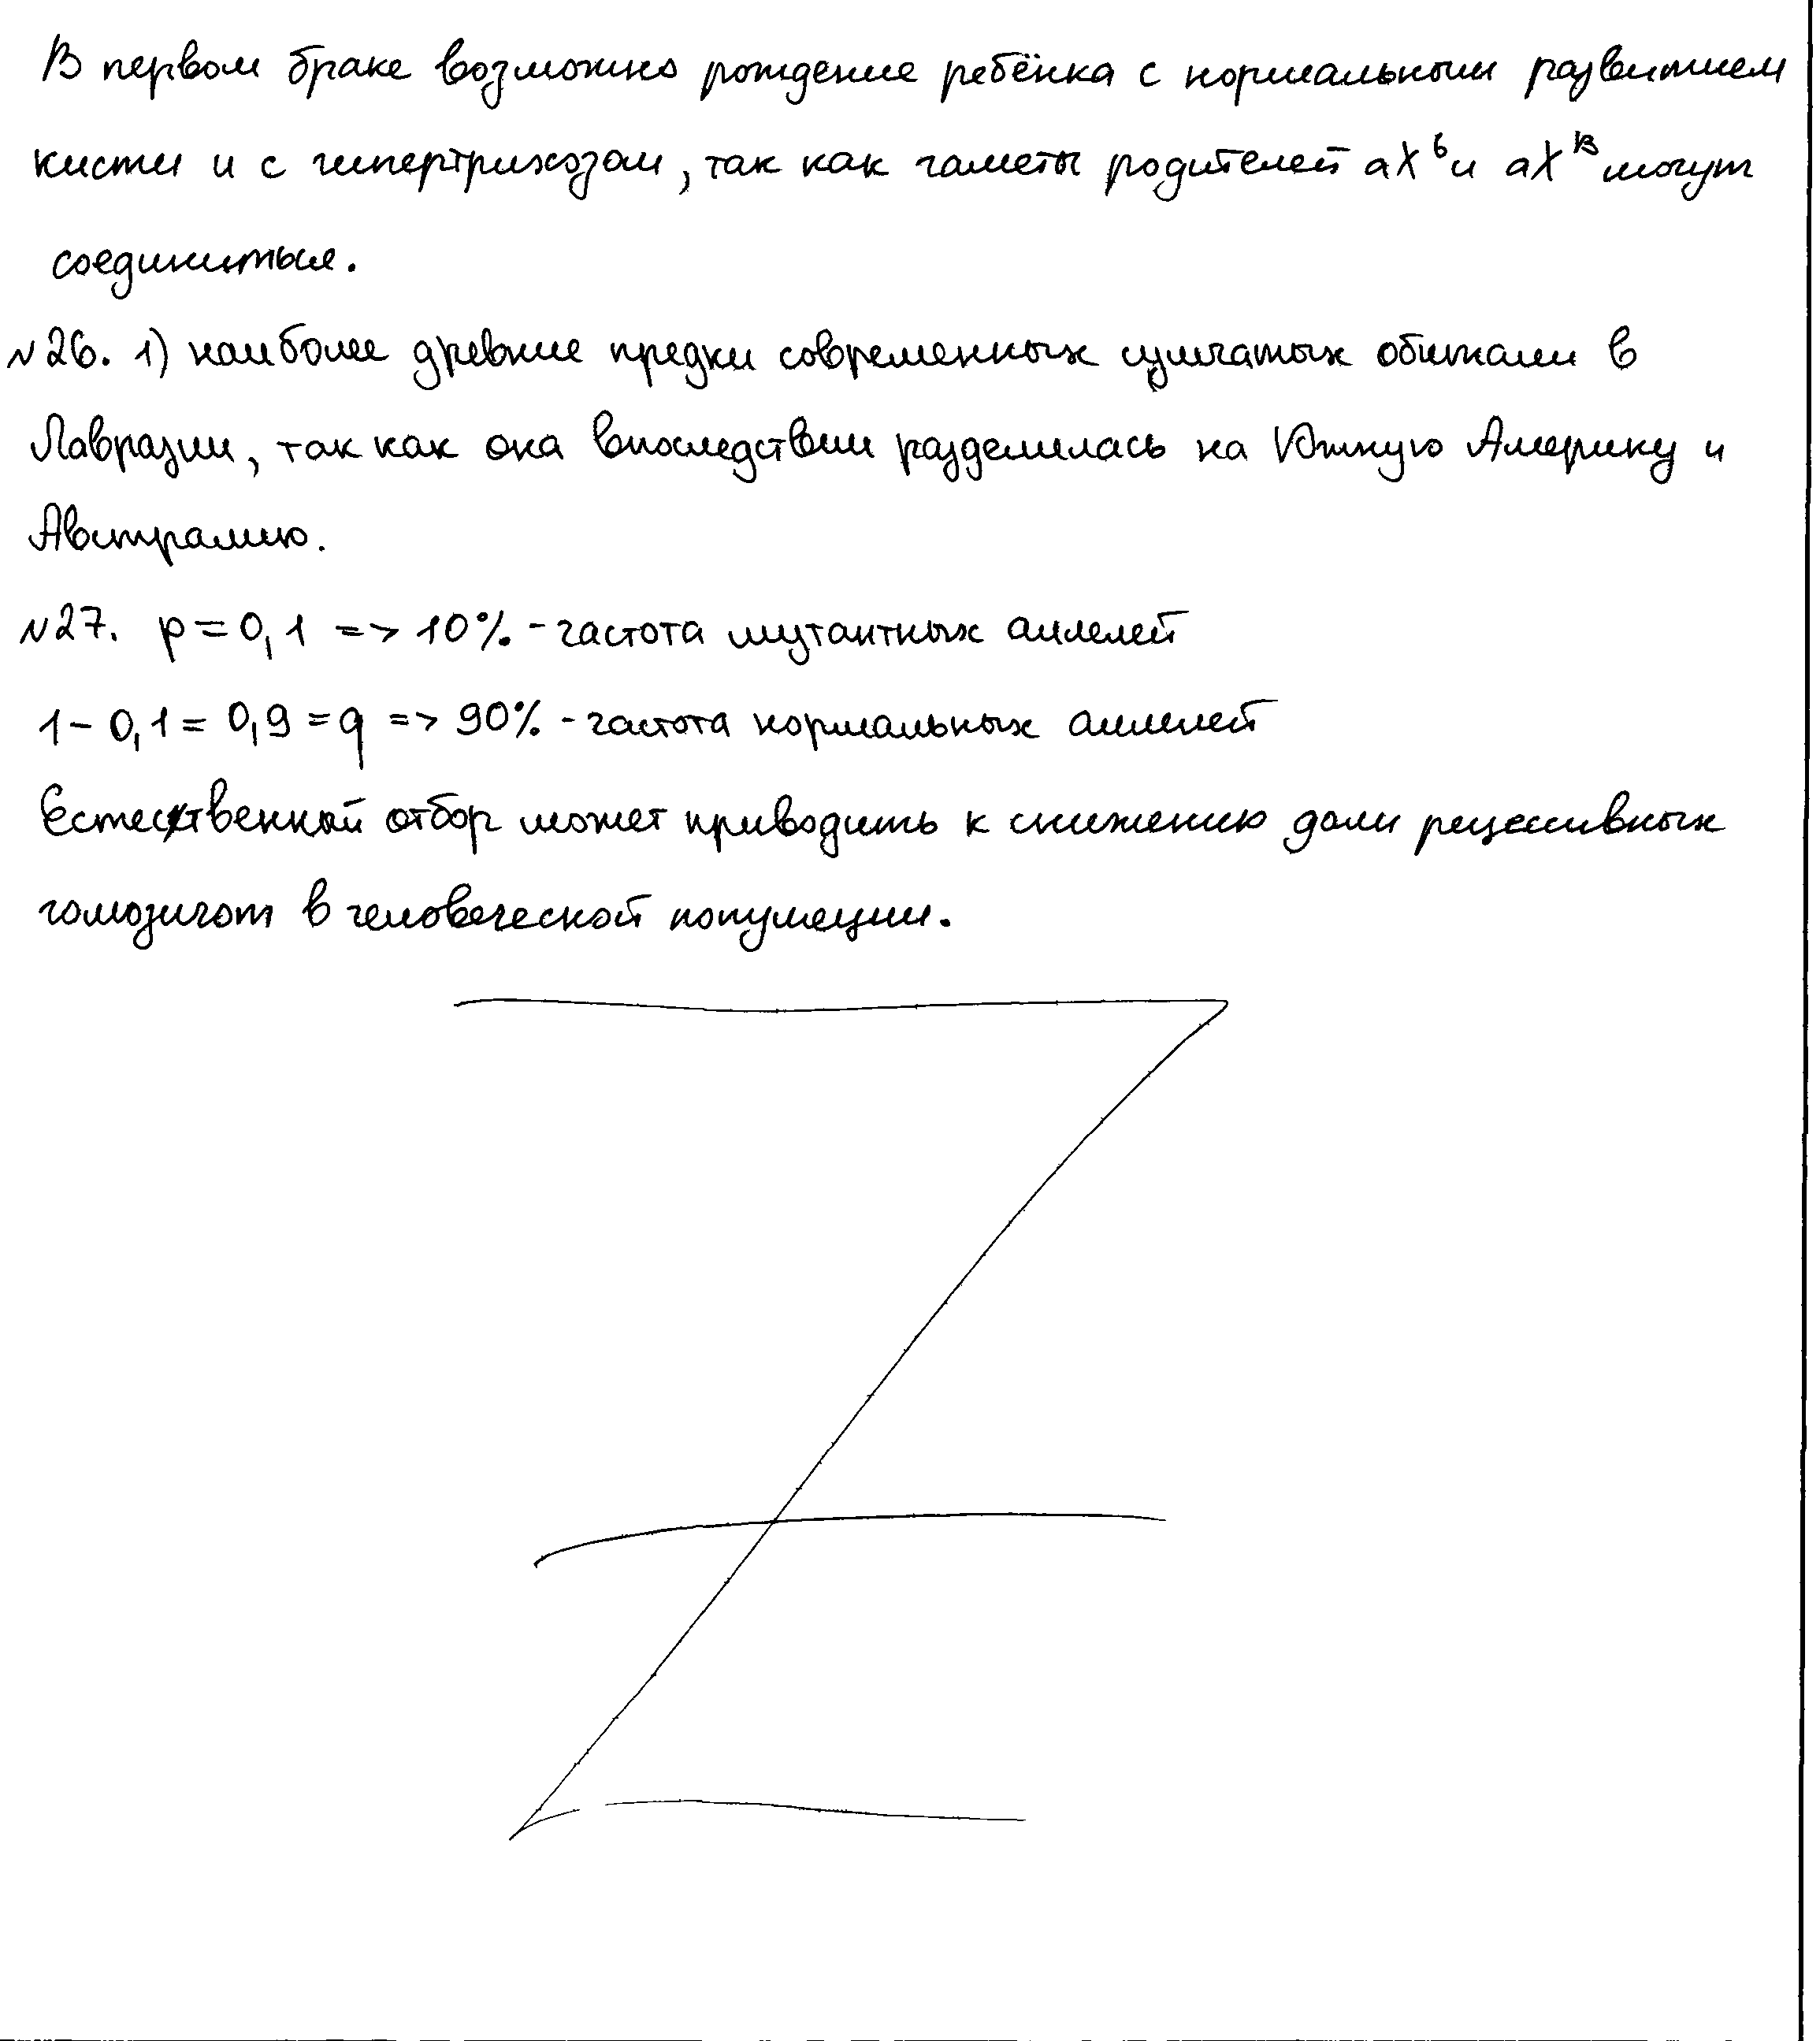 В первом браке возможно рождение ребёнка с нормальным развитием
кисти и с гипертрихозом, так как гаметы родителей aXᵇ и aXᴮ могут
соединиться.
№26. 1) наиболее древние предки современных сумчатых обитали в
Лавразии, так как она впоследствии разделилась на Южную Америку и
Австралию.
№27. p=0,1 => 10% - частота мутантных аллелей
1-0,1=0,9=q => 90% - частота нормальных аллелей
Естественный отбор может приводить к снижению доли рецессивных
гомозигот в человеческой популяции.